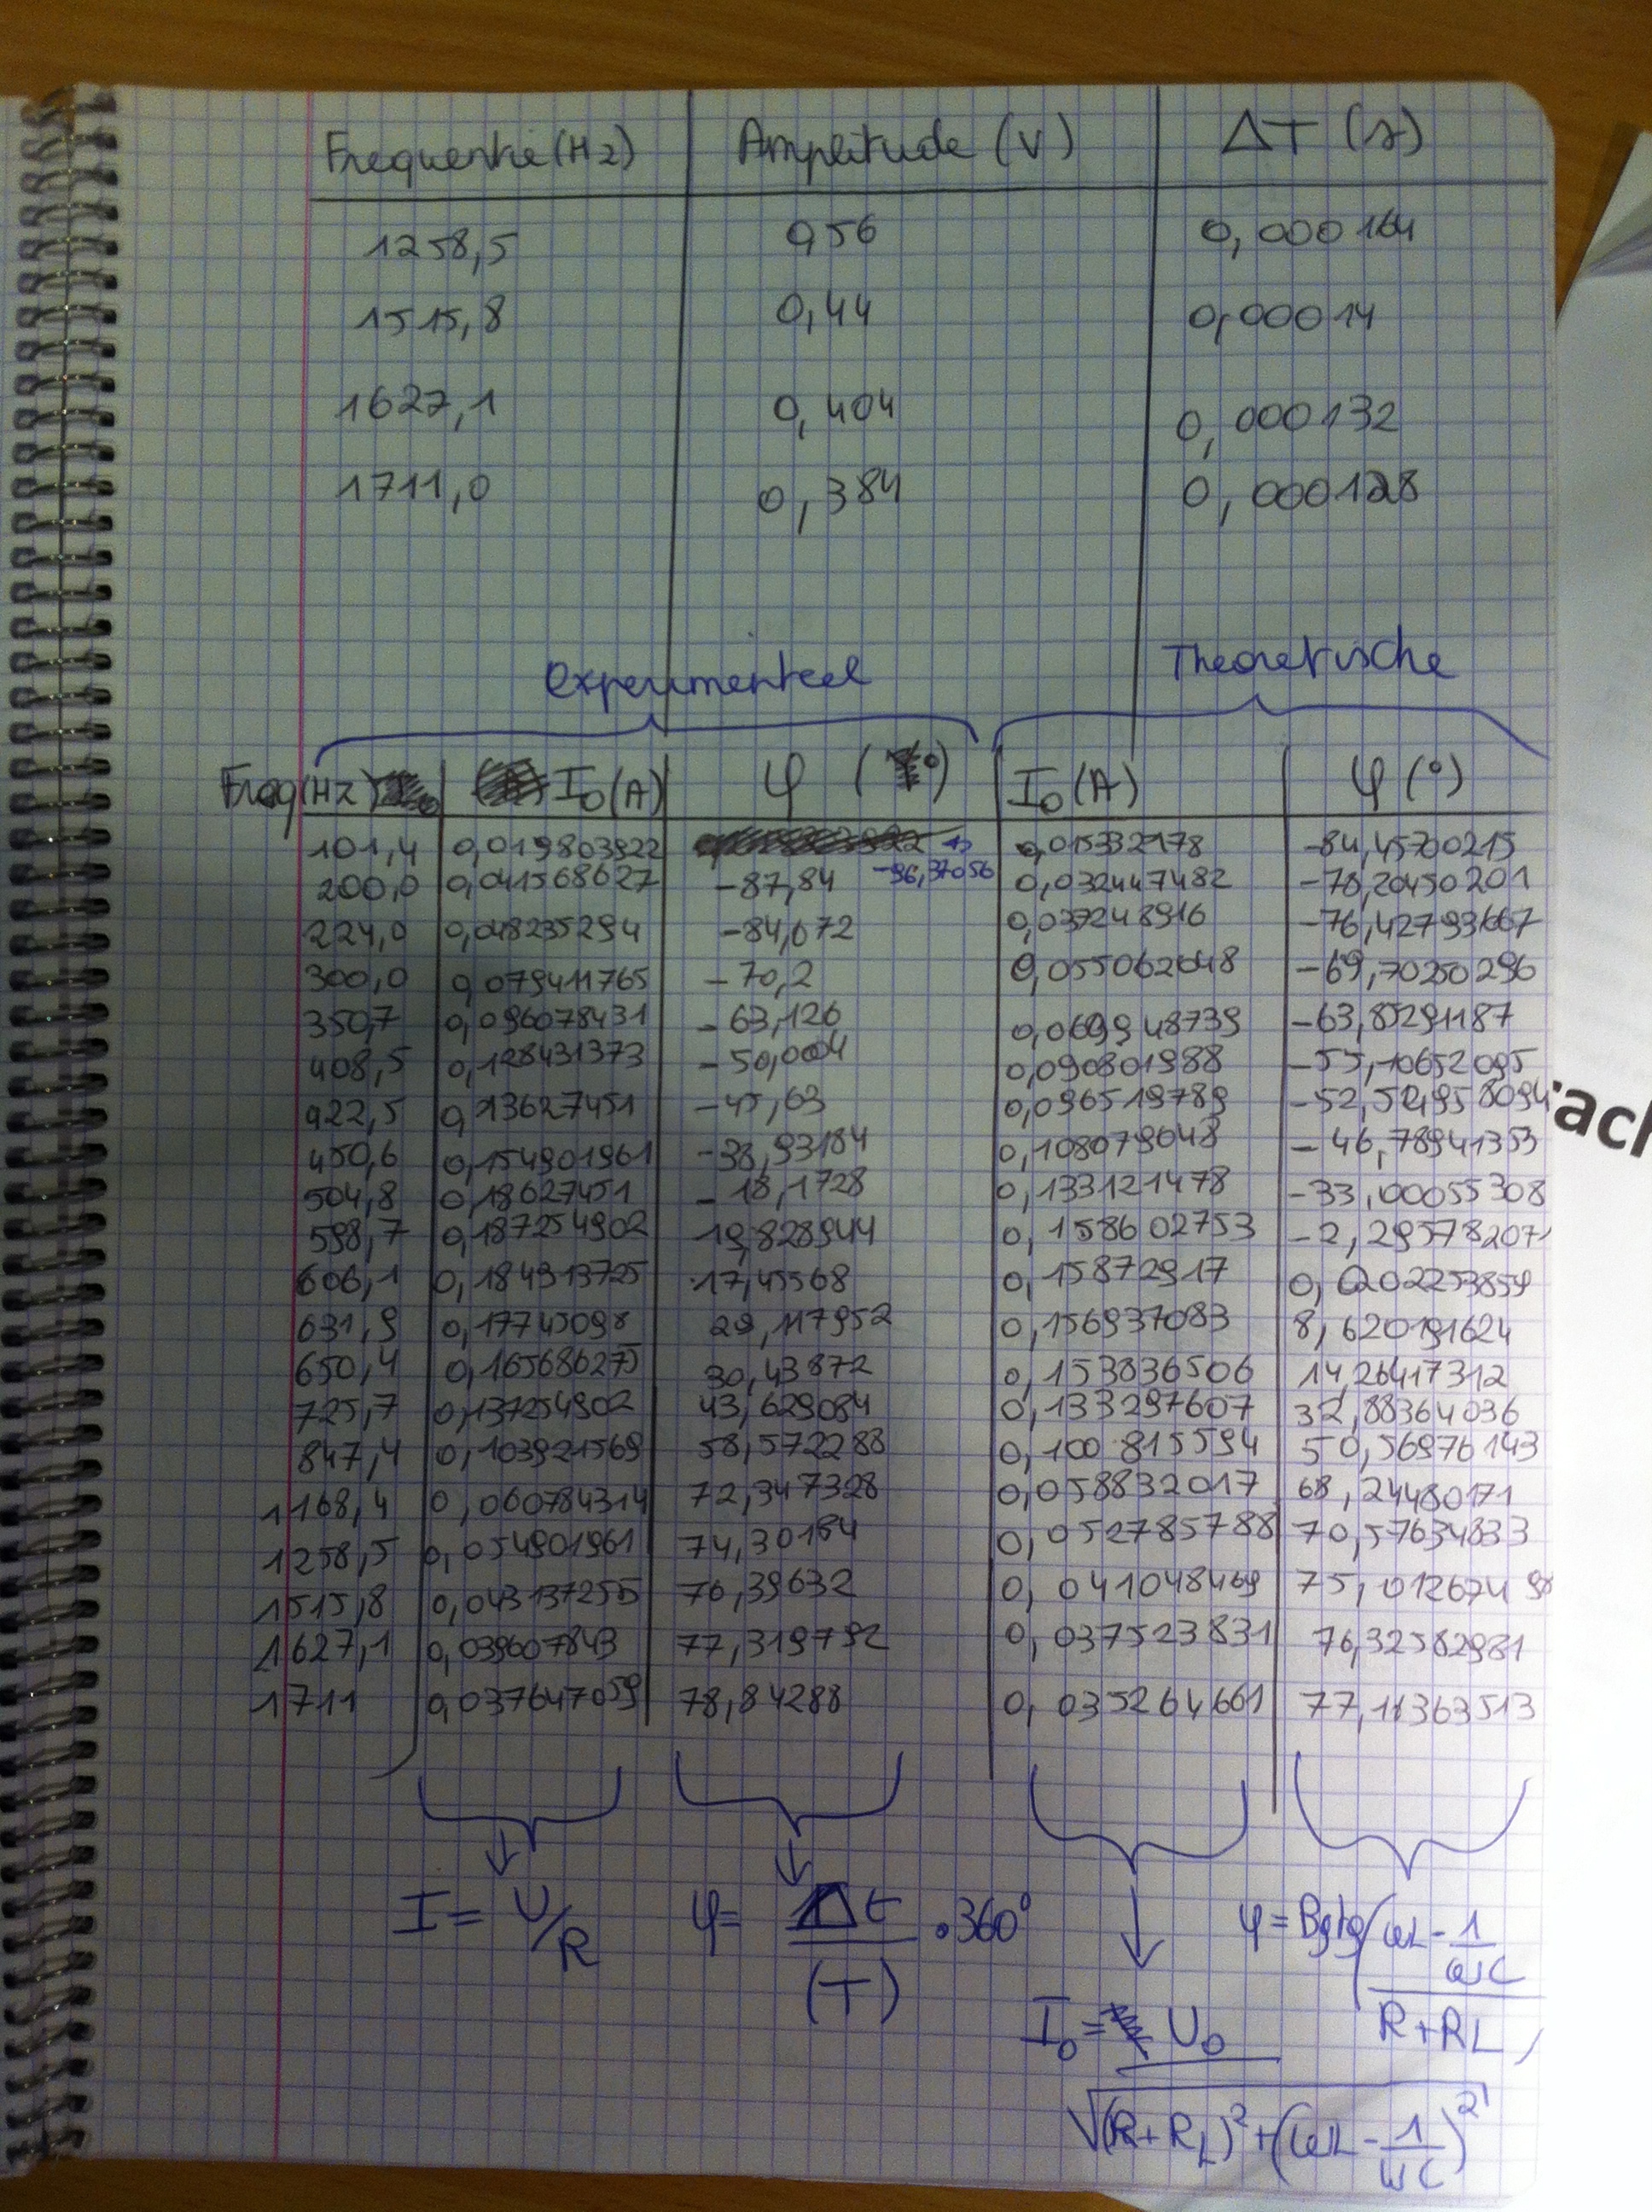 Frequentie (Hz) Amplitude (V) ΔT (s)
1258,5 0,56 0,000164
1515,8 0,44 0,00014
1627,1 0,404 0,000132
1711,0 0,384 0,000128
Experimenteel Theoretische
Freq(Hz) I₀(A) φ (°) I₀(A) φ(°)
101,4 0,019803922 -96,37056 0,01532178 -84,45700215
200,0 0,041568627 -87,84 0,032447482 -78,20450201
224,0 0,048235294 -84,672 0,037248916 -76,42793667
300,0 0,079411765 -70,2 0,055062048 -69,70250296
350,7 0,096078431 -63,126 0,069948739 -63,85291187
408,5 0,128431373 -50,0004 0,090801988 -55,10652095
422,5 0,13627451 -45,63 0,096519789 -52,524958094
450,6 0,154901961 -38,93184 0,108079048 -46,78941353
504,8 0,18627451 -18,1728 0,133121478 -33,00055308
598,7 0,187254902 19,828944 0,158602753 -2,295782071
606,1 0,184313725 17,45568 0,15872917 0,0202253859
631,9 0,17745098 29,117952 0,156937083 8,620191624
650,4 0,165686275 30,43872 0,153836506 14,26417312
725,7 0,137254902 43,629084 0,133297607 32,88364036
847,4 0,103921569 58,572288 0,100815594 50,56976143
1168,4 0,060784314 72,347328 0,058832017 68,24480171
1258,5 0,054901961 74,30184 0,052785788 70,57634833
1515,8 0,043137255 76,39632 0,041048469 75,01267498
1627,1 0,039607843 77,319792 0,037523831 76,32582981
1711 0,037647059 78,84288 0,035264661 77,11363513
I = U/R φ = Δt/(T) .360° φ = Bgtg(ωL - 1/ωC / R+RL)
I₀ = U₀ / √((R+R_L)² + (ωL - 1/ωC)²)
ach